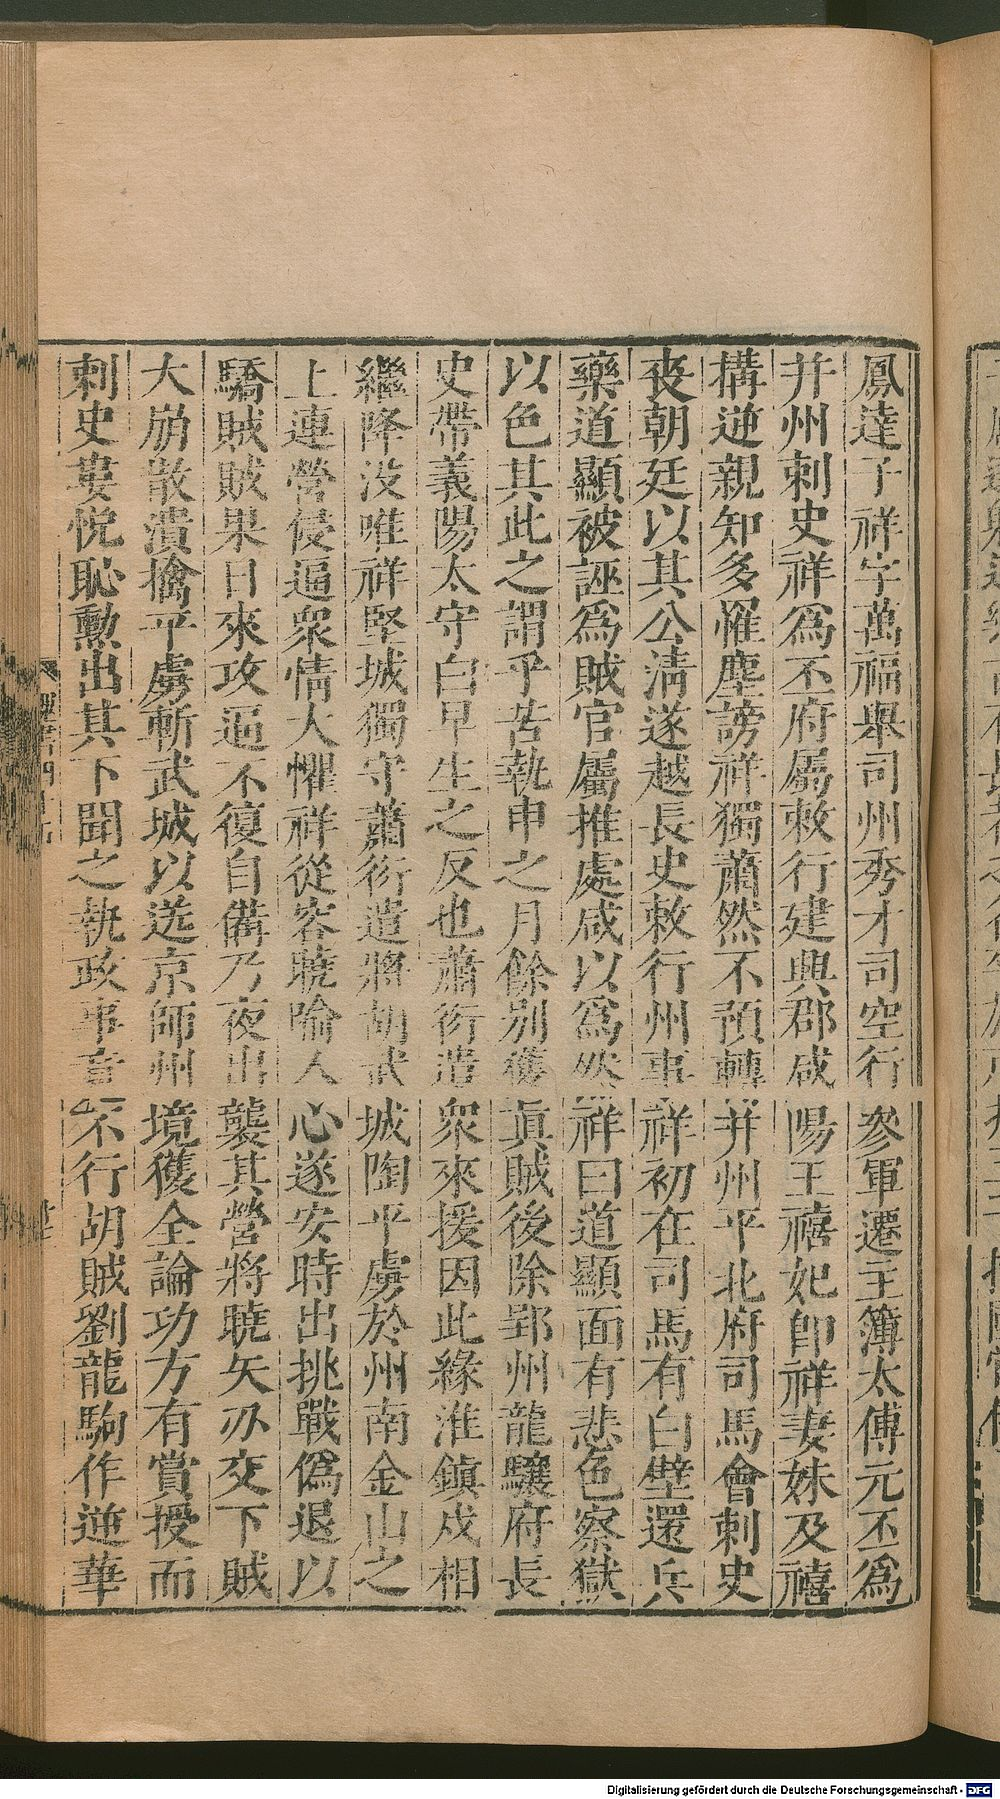 鳳達子祥字萬福舉司州秀才司空行參軍遷主簿太傅元丕爲
并州刺史祥爲丕府屬敕行建興郡咸陽王禧妃卽祥妻妹及禧
構逆親知多罹塵謗祥獨蕭然不預轉并州平北府司馬會刺史
喪朝廷以其公淸遂越長史敕行州事祥初在司馬有白壁還兵
藥道顯被誣爲賊官屬推處咸以爲然祥曰道顯面有悲色察獄
以色其此之謂乎苦執申之月餘別獲眞賊後除郢州龍驤府長
史帶義陽太守白早生之反也蕭衍遣衆來援因此緣淮鎭戍相
繼降没唯祥堅城獨守蕭衍遣將胡武城陶平虜於州南金山之
上連營侵逼衆情大懼祥從容曉喻人心遂安時出挑戰僞退以
驕賊賊果日來攻逼不復自備乃夜出襲其營將曉矢刃交下賊
大崩散潰擒平虜斬武城以送京師州境獲全論功方有賞授而
刺史婁悅恥勳出其下聞之執政事竟不行胡賊劉龍駒作逆華
Digitalisierung gefördert durch die Deutsche Forschungsgemeinschaft - DFG